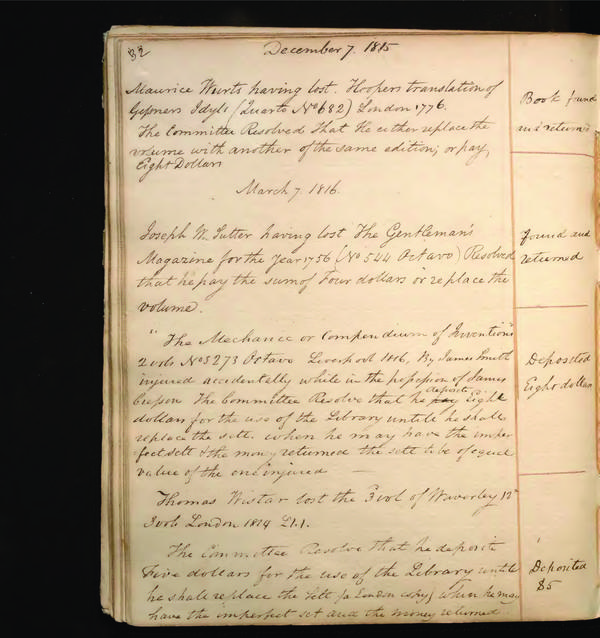 32
December 7. 1815
Maurice Wurts having lost. Hoopers translation of
Gessners Idyls (Quarto No 682) London 1776.
The Committee Resolved That He either replace the
volume with another of the same edition; or pay,
Eight Dollars
Book found
and returned
March 7. 1816.
Joseph W. Sutter having lost The Gentleman's
Magazine for the Year 1756 (No 544 Octavo) Resolved
that he pay the sum of Four dollars or replace the
volume.
found and
returned
"The Mechanic or Compendium of Inventions"
2 vols No 5273 Octavo Liverpool 1816, By James Smith
injured accidentally while in the possession of James
Cresson The Committee Resolve that he deposite Eight
dollars for the use of the Library untill he shall
replace the sett. when he may have the imper
fect sett & the money returned the sett to be of equal
value of the one injured —
Deposited
Eight dollars
Thomas Wistar lost the 3 vol of Waverley 12o
3 vols London 1814 £1.1.
The Committee Resolve that he deposite
Five dollars for the use of the Library untill
he shall replace the Sett (a London copy) when he may
have the imperfect set and the money returned
Deposited
$5